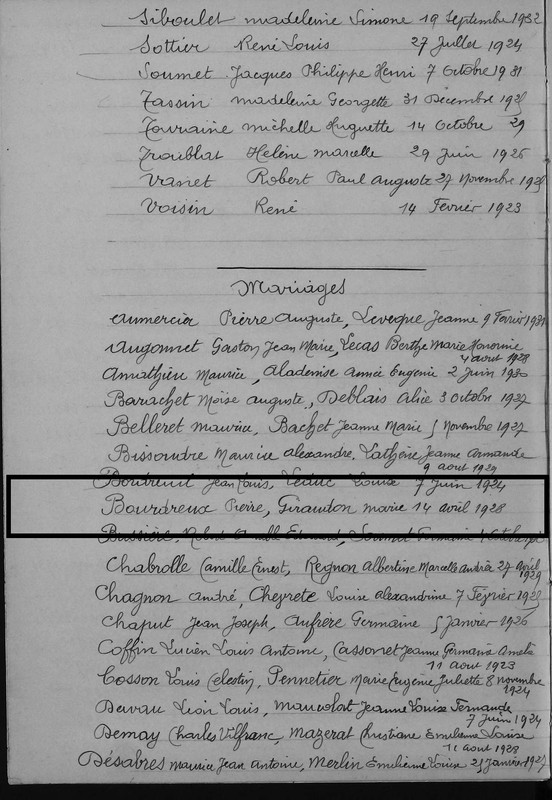 Siboulet madeleine Simone 19 Septembre 1932
Sottier René Louis 27 Juillet 1924
Soumet Jacques Philippe Henri 7 Octobre 1931
Tassin madeleine Georgette 31 Décembre
Touraine michelle Huguette 14 Octobre 29
Troublat Hélène marcelle 29 Juin 1926
Vanet Robert Paul auguste 27 Novembre
Voisin René 14 Février 1923
Mariages
aumercier Pierre auguste, Leveque Jeanne 9 Février 1931
augonnet Gaston Jean Marie, Lecas Berthe Marie Honorine
4 aout 1928
amathieu Maurice, aladenise aimée Eugenie 2 Juin 1930
Barachet Moïse auguste, Deblais alice 3 octobre 1927
Belleret maurice, Bachet Jeanne Marie 5 Novembre 1927
Bissondre Maurice alexandre, Jeanne armande
9 aout 1929
Jean Louis, Leduc Louise 7 Juin 1924
Bourdreux Pierre, Giraudon marie 14 avril 1928
Bussière, Robert
Chabrolle Camille Ernest, Reignon albertine Marcelle andrée 27 avril
1929
Chagnon andré, Cheyrete Louise alexandrine 7 Février
Chaput Jean Joseph, aufrère Germaine 5 Janvier 1926
Coffin Lucien Louis antoine, Cassonet Jeanne Germaine amelie
11 aout 1923
Cosson Louis Celestin, Pennetier Marie Eugénie Juliette 8 novembre
1924
Devau Léon Louis, Jeanne Louise Fernande
7 Juin 1924
Demay Charles Vilfranc, Mazerat Christiane Emilienne Louise
11 aout 1928
Désabres maurice Jean antoine, Merlin Emilienne Louise 25 Janvier